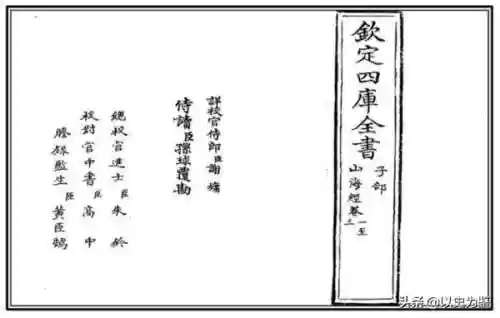 欽定四庫全書
子部
山海經卷一至三
詳校官侍郎臣謝墉
侍讀臣孫球覆勘
總校官進士臣朱鈐
校對官中書臣高中
謄錄監生臣黃臣鵠
头条 @以史为鉴